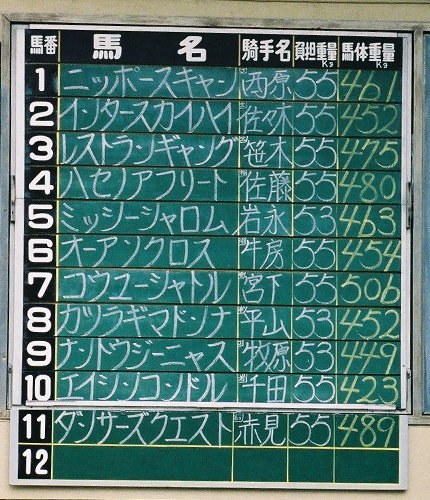 馬番 馬名 騎手名 負担重量Kg 馬体重量Kg
1 ニッポースキャン 西原 55 461
2 インタースカイハイ 佐々木 55 452
3 レストランギャング 笹木 55 475
4 ハセノアフリート 佐藤 55 480
5 ミッシーシャロム 岩永 53 463
6 オーアンクロス 牛房 55 454
7 コウユーシャトル 宮下 55 506
8 カツラギマドンナ 平山 53 452
9 ナントウジーニャス 牧原 53 449
10 エイシンコンドル 千田 55 423
11 ダンサーズクエスト 赤見 55 489
12